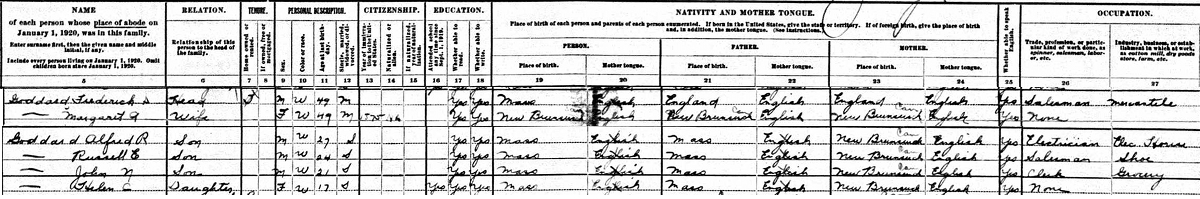 NAME RELATION. TENURE. PERSONAL DESCRIPTION. CITIZENSHIP. EDUCATION. NATIVITY AND MOTHER TONGUE. OCCUPATION.
of each person whose place of abode on January 1, 1920, was in this family.
Enter surname first, then the given name and middle initial, if any.
Include every person living on January 1, 1920. Omit children born since January 1, 1920.
Relationship of this person to the head of the family.
Home owned or rented.
If owned, free or mortgaged.
Sex.
Color or race.
Age at last birthday.
Single, married, widowed, or divorced.
Year of immigration to the United States.
Naturalized or alien.
If naturalized, year of naturalization.
Attended school any time since Sept. 1, 1919.
Whether able to read.
Whether able to write.
Place of birth of each person and parents of each person enumerated. If born in the United States, give the state or territory. If of foreign birth, give the place of birth and, in addition, the mother tongue. (See instructions.)
PERSON. FATHER. MOTHER.
Place of birth. Mother tongue. Place of birth. Mother tongue. Place of birth. Mother tongue.
Whether able to speak English.
Trade, profession, or particular kind of work done, as spinner, salesman, laborer, etc.
Industry, business, or establishment in which at work, as cotton mill, dry goods store, farm, etc.
5 6 7 8 9 10 11 12 13 14 15 16 17 18 19 20 21 22 23 24 25 26 27
Goddard, Frederick Head M W 49 M Yes Yes Mass English England English England English Yes Salesman mercantile
— Margaret A Wife F W 49 M Yes Yes New Brunswick English New Brunswick Can English New Brunswick Can English Yes None
Goddard Alfred R Son M W 27 S Yes Yes Mass English Mass English New Brunswick Can English Yes Electrician Elec. House
— Russell E Son M W 24 S Yes Yes Mass English Mass English New Brunswick Can English Yes Salesman Shoe
— John N Son M W 21 S Yes Yes Mass English Mass English New Brunswick Can English Yes Clerk Grocery
— Helen C Daughter F W 17 S Yes Yes Yes Mass English Mass English New Brunswick English Yes None